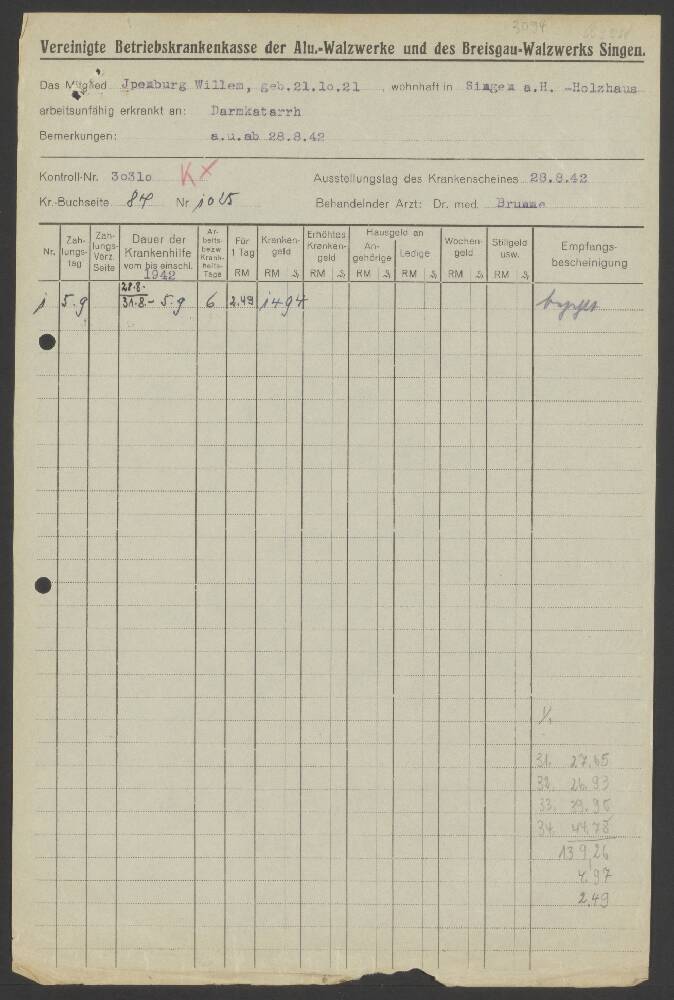 3094
Vereinigte Betriebskrankenkasse der Alu.-Walzwerke und des Breisgau-Walzwerks Singen.
Das Mitglied Jpenburg Willem, geb.21.1o.21 , wohnhaft in Singen a.H. -Holzhaus
arbeitsunfähig erkrankt an: Darmkatarrh
Bemerkungen: a.u.ab 28.8.42
Kontroll-Nr. 3o31o Kx Ausstellungstag des Krankenscheines 28.8.42
Kr.-Buchseite 84 Nr 1025 Behandelnder Arzt: Dr. med. Brumme
Nr. Zahlungstag Zahlungs-Verz. Seite Dauer der Krankenhilfe vom bis einschl. 1942 Arbeits- bezw Krankheits-Tage Für 1 Tag RM Krankengeld RM ₰ Erhöhtes Krankengeld RM ₰ Hausgeld an Angehörige RM ₰ Ledige RM ₰ Wochengeld RM ₰ Stillgeld usw. RM ₰ Empfangsbescheinigung
28.8.-
1 5.9 31.8.- 5.9 6 2.49 14 94
1/1
31. 27.65
32. 26.93
33. 39.90
34. 44.78
139,26
4.97
2.49